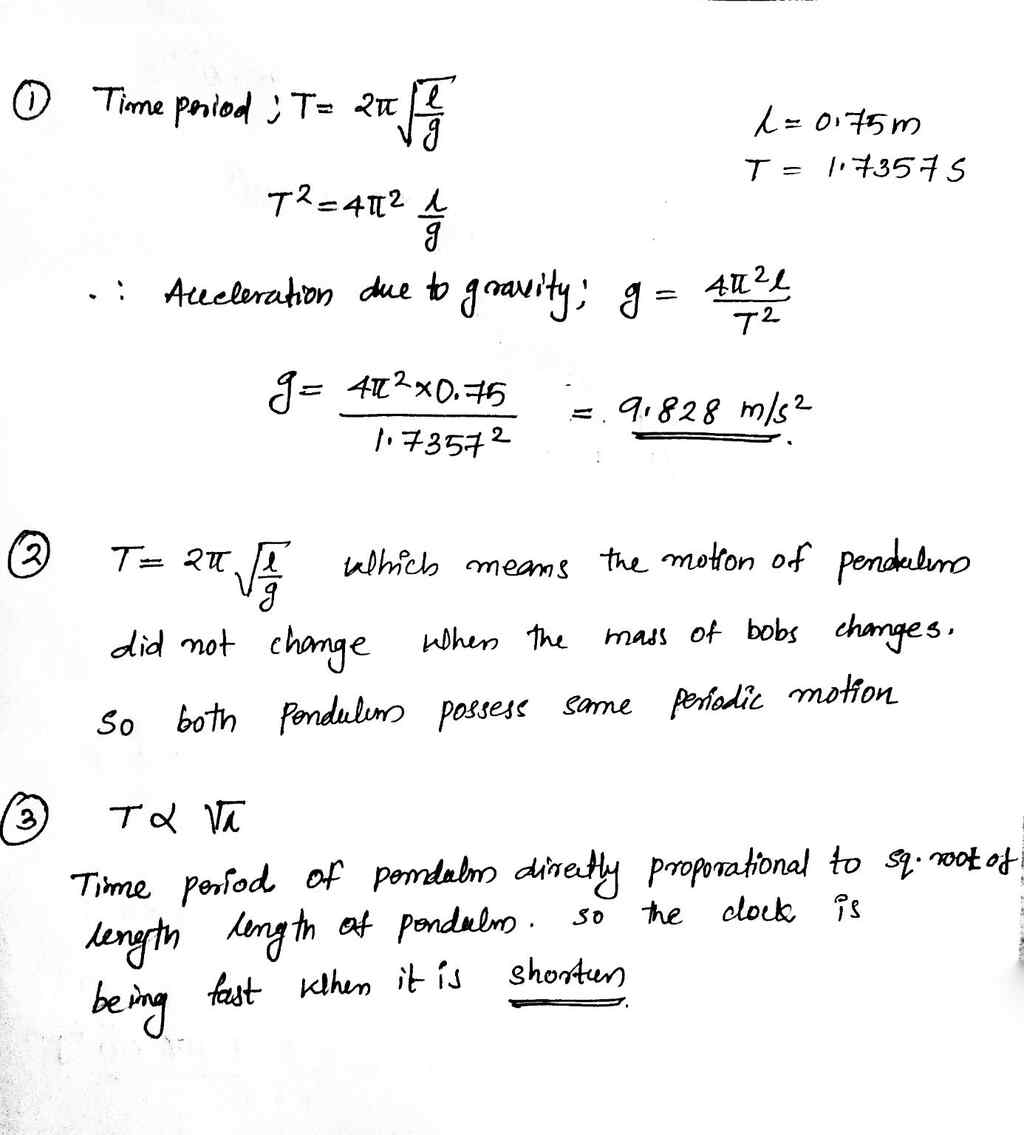 ① Time period ; T = 2π√(l/g)
l = 0.75m
T = 1.7357 S
T² = 4π² l/g
∴ Acceleration due to gravity; g = 4π²l/T²
g = 4π²×0.75/1.7357² = 9.828 m/s².
② T = 2π√(l/g) which means the motion of pendulum
did not change when the mass of bobs changes.
So both Pendulum possess same periodic motion
③ T ∝ √l
Time period of pendulm directly proporational to sq. root of
length length of pendulm. so the clock is
being fast when it is shorten.